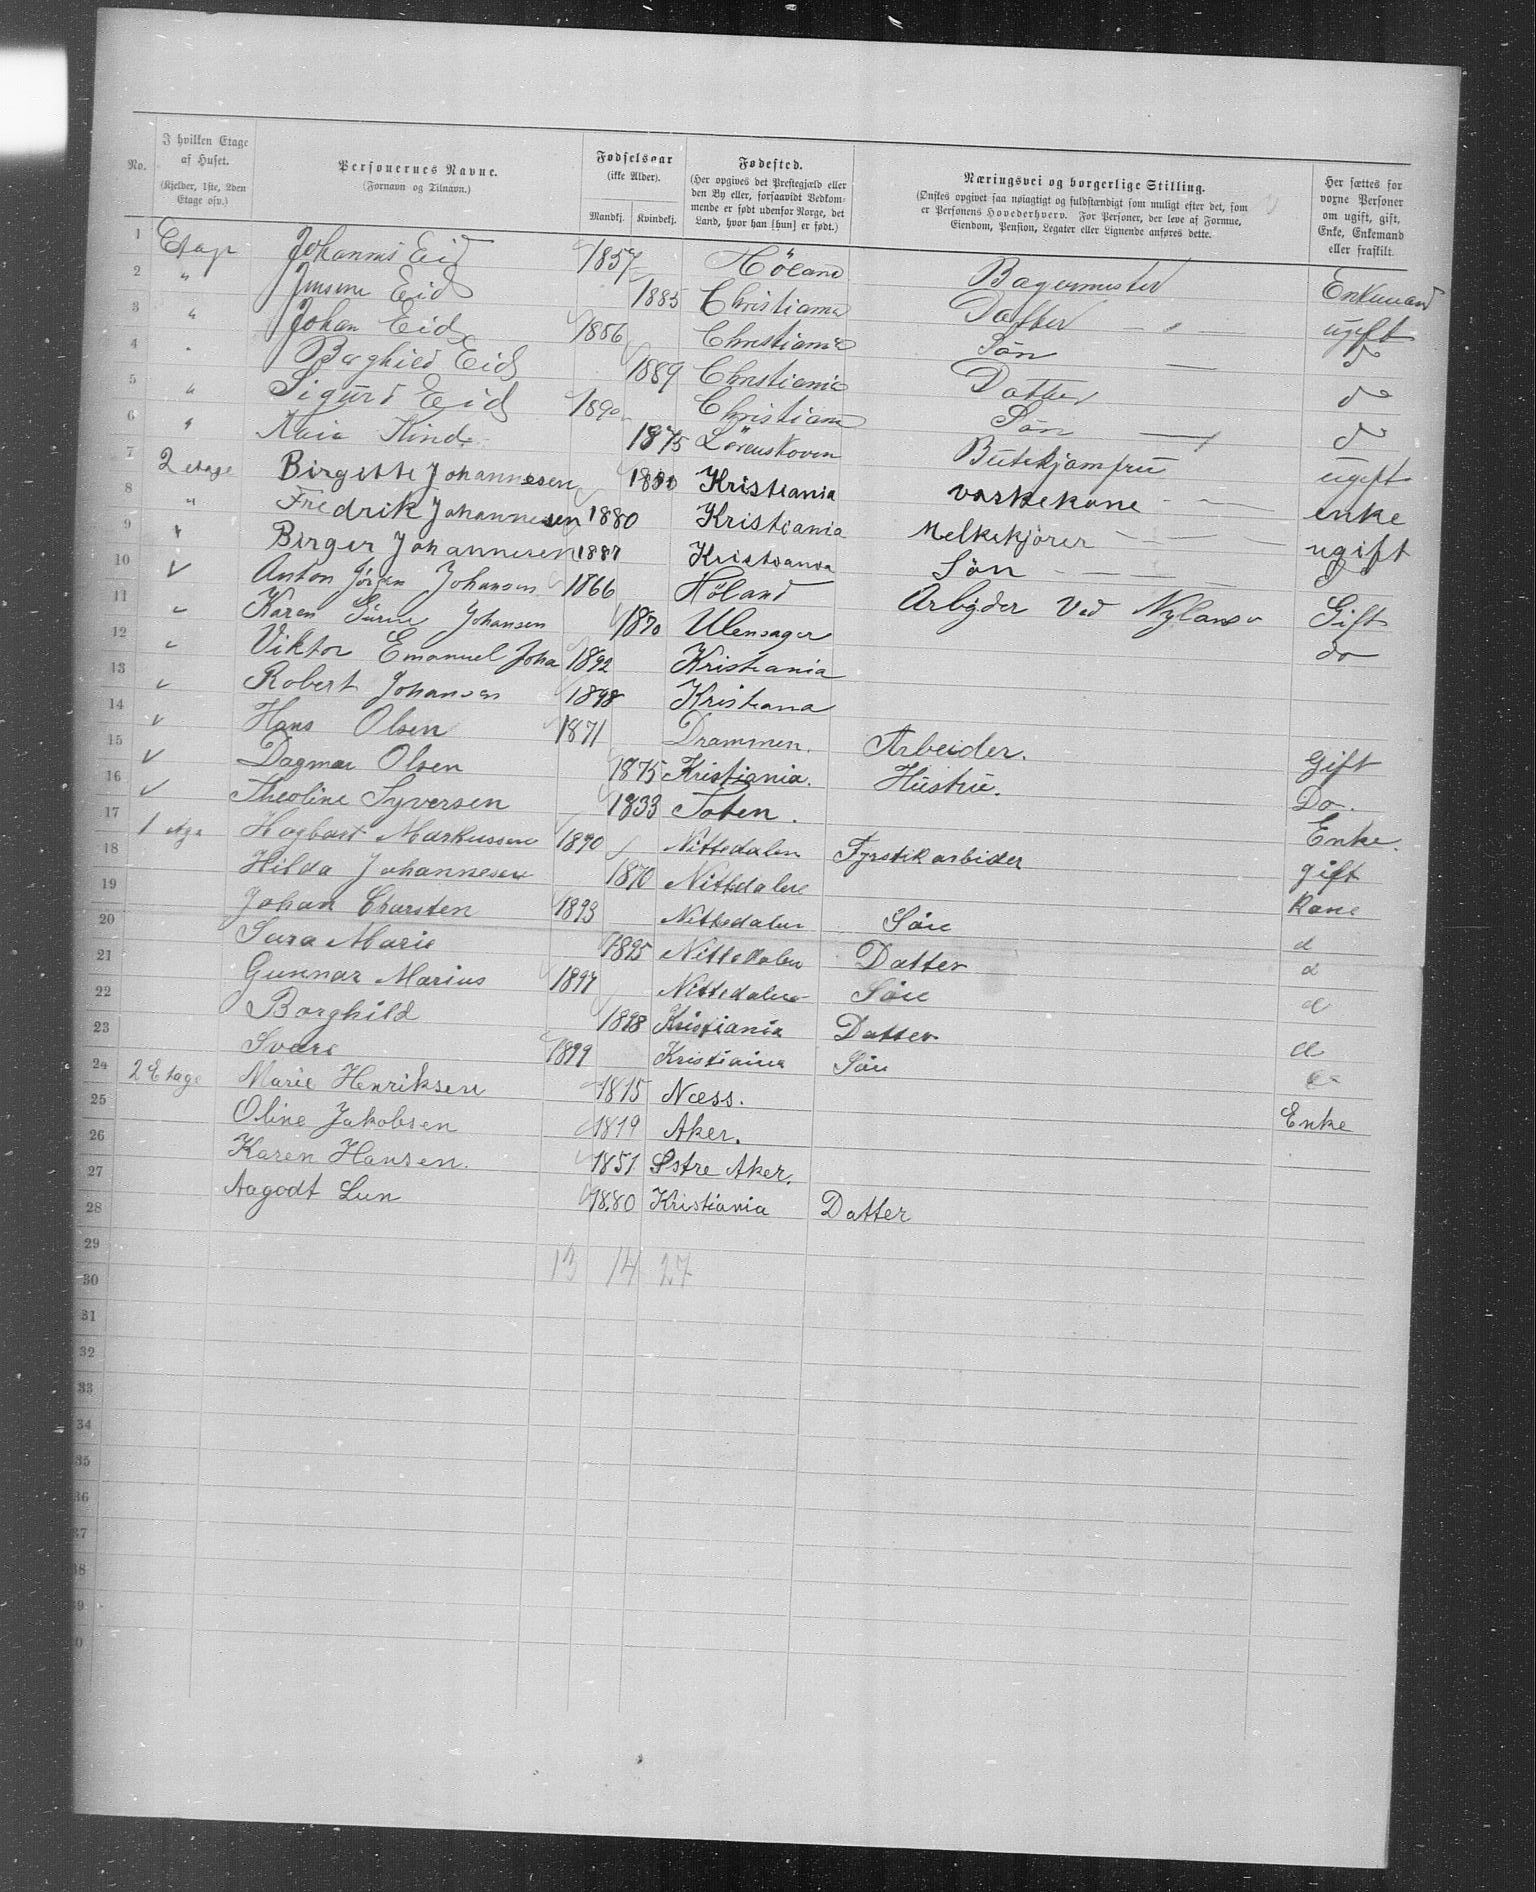 No. I hvilken Etage af Huset. (Kjelder, 1ste, 2den Etage osv.) Personernes Navne. (Fornavn og Tilnavn.) Fødselsaar (ikke Alder). Mandkj. Kvindekj. Fødested. (Her opgives det Prestegjæld eller den By eller, forsaavidt Vedkommende er født udenfor Norge, det Land, hvor han [hun] er født.) Næringsvei og borgerlige Stilling. (Ønskes opgivet saa nøiagtigt og fuldstændigt som muligt efter det, som er Personens Hovederhverv. For Personer, der leve af Formue, Eiendom, Pension, Legater eller Lignende anføres dette. Her sættes for voxne Personer om ugift, gift, Enke, Enkemand eller fraskilt.
1 Etage Johannes Eid 1857 Höland Bagermester Enkemand
2 " Jensine Eid 1885 Christiania Datter — " — ugift
3 " Johan Eid 1886 Christiania Sön — do
4 " Borghild Eid 1889 Christiania Datter do
5 " Sigurd Eid 1890 Christiania Sön — " do
6 " Kaia Kind 1875 Lörenskoven Butikjomfru ugift
7 2 etage Birgitte Johannesen Kristiania vaskekone — — enke
8 " Fredrik Johannesen 1880 Kristiania Melkekjörer — — — ugift
9 " Birger Johannesen 1887 Kristiania Sön — — — — do
10 " Anton Jörgen Johansen 1866 Höland Arbejder Ved Nyland Gift
11 " Karen Johansen 1870 Ulensager do
12 " Viktor Emanuel Joha 1892 Kristiania
13 " Robert Johansen 1898 Kristiana
14 " Hans Olsen 1871 Drammen. Arbeider. Gift
15 " Dagmar Olsen 1875 Kristiania. Hustru. Do.
16 " Theoline Syversen 1833 Toten. Enke.
17 1 etge Hagbart Markussen 1870 Nittedalen Fyrstikarbider gift
18 Hilda Johannesen 1870 Nittedalen Kone
19 Johan Charsten 1893 Nittedalen Sön d
20 Sara Marie 1895 Nittedalen Datter d
21 Gunnar Marius 1897 Nittedalen Sön d
22 Borghild 1898 Kristiania Datter d
23 Svare 1899 Kristiania Sön d
24 2 Etage Marie Henriksen 1815 Næss. Enke
25 Oline Jakobsen 1819 Aker.
26 Karen Hansen. 1851 Østre Aker.
27 Aagodt Lun 1880 Kristiania Datter
28
29 13 14 27
30
31
32
33
34
35
36
37
38
39
0